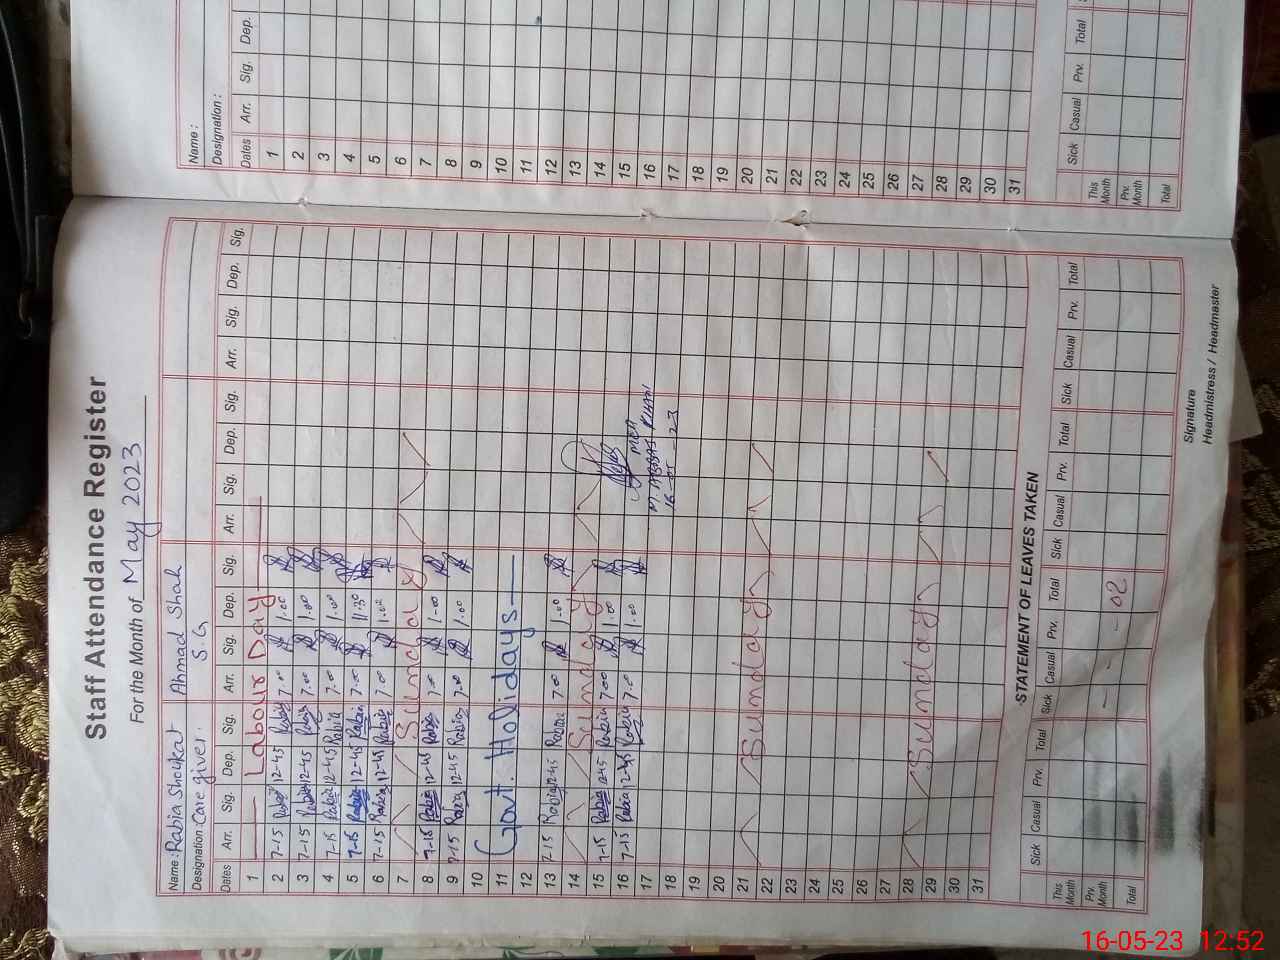 Staff Attendance Register
For the Month of May 2023
Name: Rabia Shoukat Ahmad Shah
Designation: Care giver. S.G
Dates Arr. Sig. Dep. Sig. Arr. Sig. Dep. Sig. Arr. Sig. Dep. Sig. Arr. Sig. Dep. Sig.
1 Labour Day
2 7-15 Rabia 12-45 Rabia 7.00 1.00
3 7-15 Rabia 12-45 Rabia 7.00 1.00
4 7-15 Rabia 12-45 Rabia 7.00 1.00
5 7-15 Rabia 12-45 Rabia 7.00 11:30
6 7-15 Rabia 12-45 Rabia 7.00 1.00
7 Sunday
8 7-15 Rabia 12-45 Rabia 7.00 1-00
9 7-15 Rabia 12-45 Rabia 7.00 1.00
10
11 Govt. Holidays
12
13 7-15 Rabia 12-45 Rabia 7.00 1.00
14 Sunday
15 7-15 Rabia 12-45 Rabia 7.00 1.00
16 7-15 Rabia 12-45 Rabia 7.00 1.00
MEA
M. ABBAS KHAN
16-05-23
17
18
19
20
21 Sunday
22
23
24
25
26
27
28 Sunday
29
30
31
STATEMENT OF LEAVES TAKEN
Sick Casual Prv. Total Sick Casual Prv. Total Sick Casual Prv. Total Sick Casual Prv. Total
This Month
Prv. Month - - - 02
Total
Signature
Headmistress / Headmaster
Name:
Designation:
Dates Arr. Sig. Dep.
1
2
3
4
5
6
7
8
9
10
11
12
13
14
15
16
17
18
19
20
21
22
23
24
25
26
27
28
29
30
31
Sick Casual Prv. Total
This Month
Prv. Month
Total
16-05-23 12:52